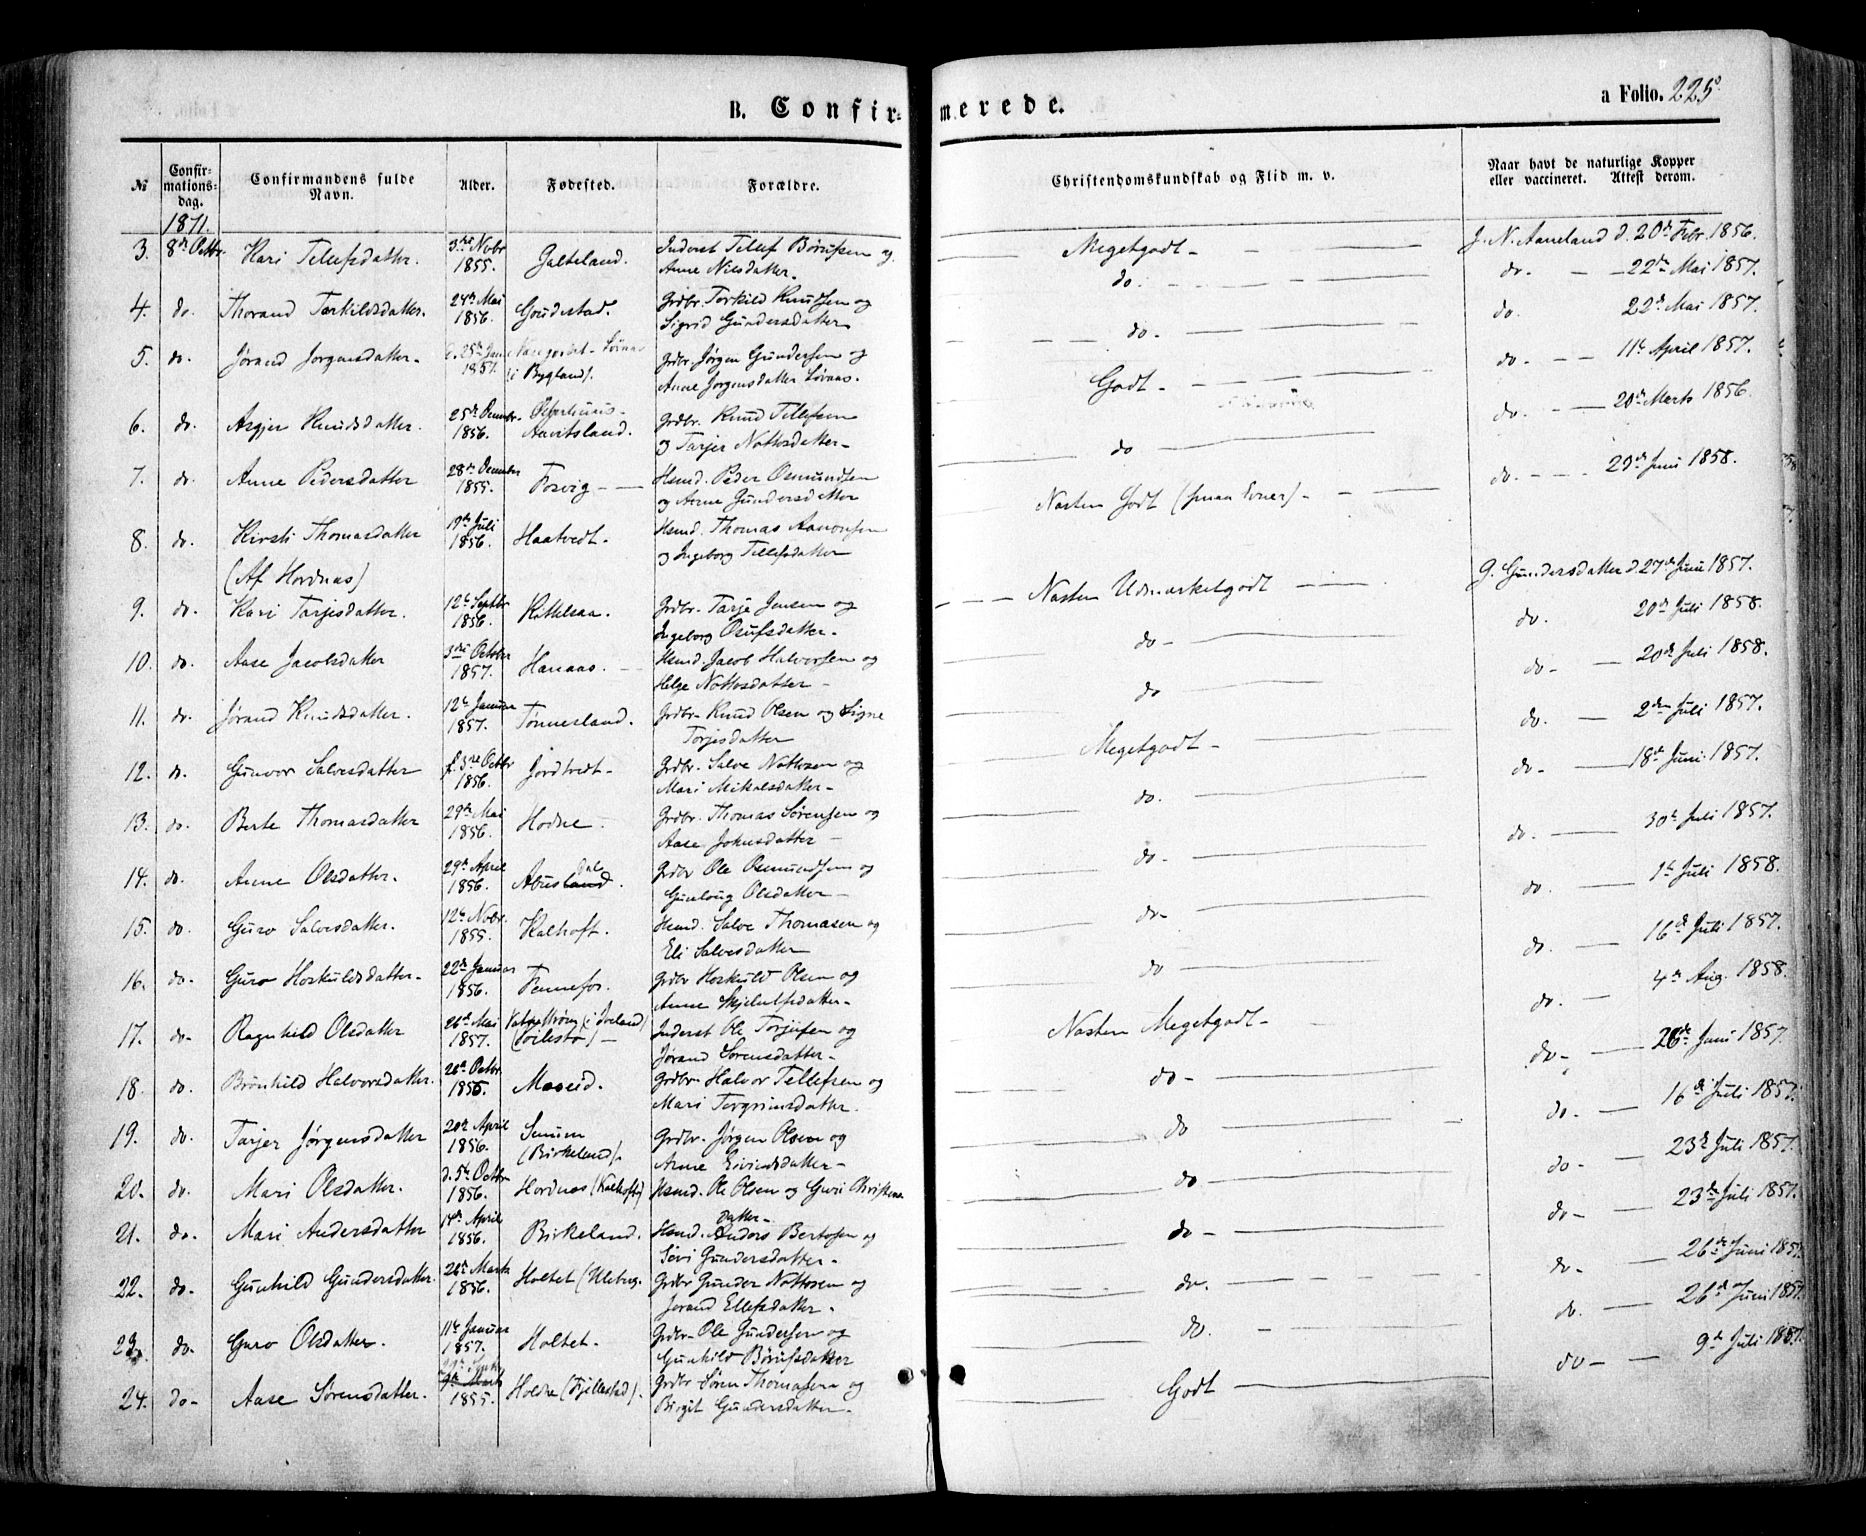 B. Confirmerede.
a Folio. 225
№
Confirmationsdag.
Confirmandens fulde Navn.
Alder.
Fødested.
Forældre.
Christendomskundskab og Flid m. v.
Naar havt de naturlige Kopper eller vaccineret. Attest derom.
1871.
3. 8de Octbr. Kari Tellefsdatter. 3die Novbr 1855. Galteland. Inderst Tellef Børufsen og Anne Nilsdatter. Megetgodt - J. N. Aaneland d. 20de Febr. 1856.
4. do. Thorand Torkildsdatter. 24de Mai 1856. Goudestad. Grdbr. Torkild Knudsen og Sigrid Gundersdatter do. do. 22de Mai 1857.
5. do. Jørand Jørgensdatter - 1857. (i Bygland). Grdbr. Jørgen Gundersen og Anne Jørgensdatter do - do. 22de Mai 1857.
6. do. Asgjer Knudsdatter. 25de Decmbr. 1856. Aavitsland. Grdbr. Knud Tellefsen og Tarjer Nottosdatter - Godt - do - 11te April 1857.
7. do. Anne Pedersdatter 28de Decmber 1855. Fosvig - Hsmd. Peder Osmundsen og Anne Gundersdatter do do. 20de Marts 1856.
8. do. Kirsti Thomasdatter (Af Hordnæs) 19de Juli 1856. Haatvedt. Hsmd. Thomas Aanonsen og Ingeborg Tellefsdatter Næsten Godt (smaa Evner) - do. - 29de Juni 1858.
9. do. Kari Tarjesdatter. 12te Septbr 1856. Kittelsaa. Grdbr. Tarje Jensen og Ingeborg Osufsdatter. Næsten Udmærketgodt G. Gundersdatter d. 27de Juni 1857.
10. do. Aase Jacobsdatter 3die October 1857. Hanaas. - Hsmd. Jacob Halvorsen og Helge Nottosdatter - do - do. 20de Juli 1858.
11. do. Jørand Knudsdatter. 12te Januar 1857. Tønnesland. Grdbr. Knud Olsen og Signe Torjusdatter do do - 20de Juli 1858.
12. do. Gunvor Salvesdatter f. 3die Octbr 1856. Jordtvedt - Grdbr. Salve Nottosen og Mari Mikalsdatter - Megetgodt - do. 2den Juli 1857.
13. do. Berte Thomasdatter 29de Mai 1856. Hodne - Grdbr. Thomas Sørensen og Aase Johnsdatter - do. do - 18de Juni 1857.
14. do. Anne Olsdatter. 29de April 1856. Abusland dal. Grdbr Ole Osmundsen og Gunloug Olsdatter - do - do. 30te Juli 1857.
15. do. Guro Salvesdatter. 12te Novbr. 1855. Kalhoft. Hsmd. Salve Thomasen og Eli Salvesdatter do - do. 1ste Juli 1858.
16. do. Guro Hoskuldsdatter - 22de Januar 1856. Fennefos. Grdbr Hoskuld Olsen og Anne do do. 16de Juli 1857.
17. do - Ragnhild Olsdatter 26de Mai 1857. Vatnestrøm (i Iveland) - Inderst Ole Torjusen og Jørand Sørensdatter - Næsten Megetgodt - do. 4de Aug. 1858.
18. do. Brønhild Halvorsdatter. 28de Octbr. 1856. Moseid. Grdbr. Halvor Tellefsen og Mari Torgrimsdatter. do - do - 26de Juni 1857.
19. do. Tarjer Jørgensdatter 20de April 1856. Senum (Birkeland). Grdbr. Jørgen Olsen og Anne Eivindsdatter - do do - 16de Juli 1857.
20. do. Mari Olsdatter. d. 5te Octbr 1856. Hordnæs (Kalhoft) Hsmd. Ole Olsen og Guri Christensdatter - do - do - 23de Juli 1857.
21. do - Mari Andersdatter 14de April 1856. Birkeland. Hsmd. Anders Bertosen og Sevi Gundersdatter - do - do - 23de Juli 1857.
22. do - Gunhild Gundersdatter. 26de Marts 1856. Holtet (Uleberg. Grdbr Gunder Nottosen og Jorand Ellefsdatter - do. do - 26de Juni 1857.
23. do - Guro Olsdatter. 11te Januar 1857. Holtet. Grdbr - Ole Gundersen og Gunhild Børufsdatter do. do. 26de Juni 1857.
24. do - Aase Sørensdatter. 9de Marts 1855. Hodne (Fjellestad). Grdbr Søren Thomasen og Birgit Gundersdatter. Godt do - 9de Juli 1857.